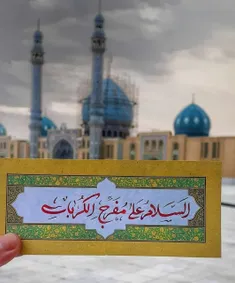 السلام علی مفرج الکربات